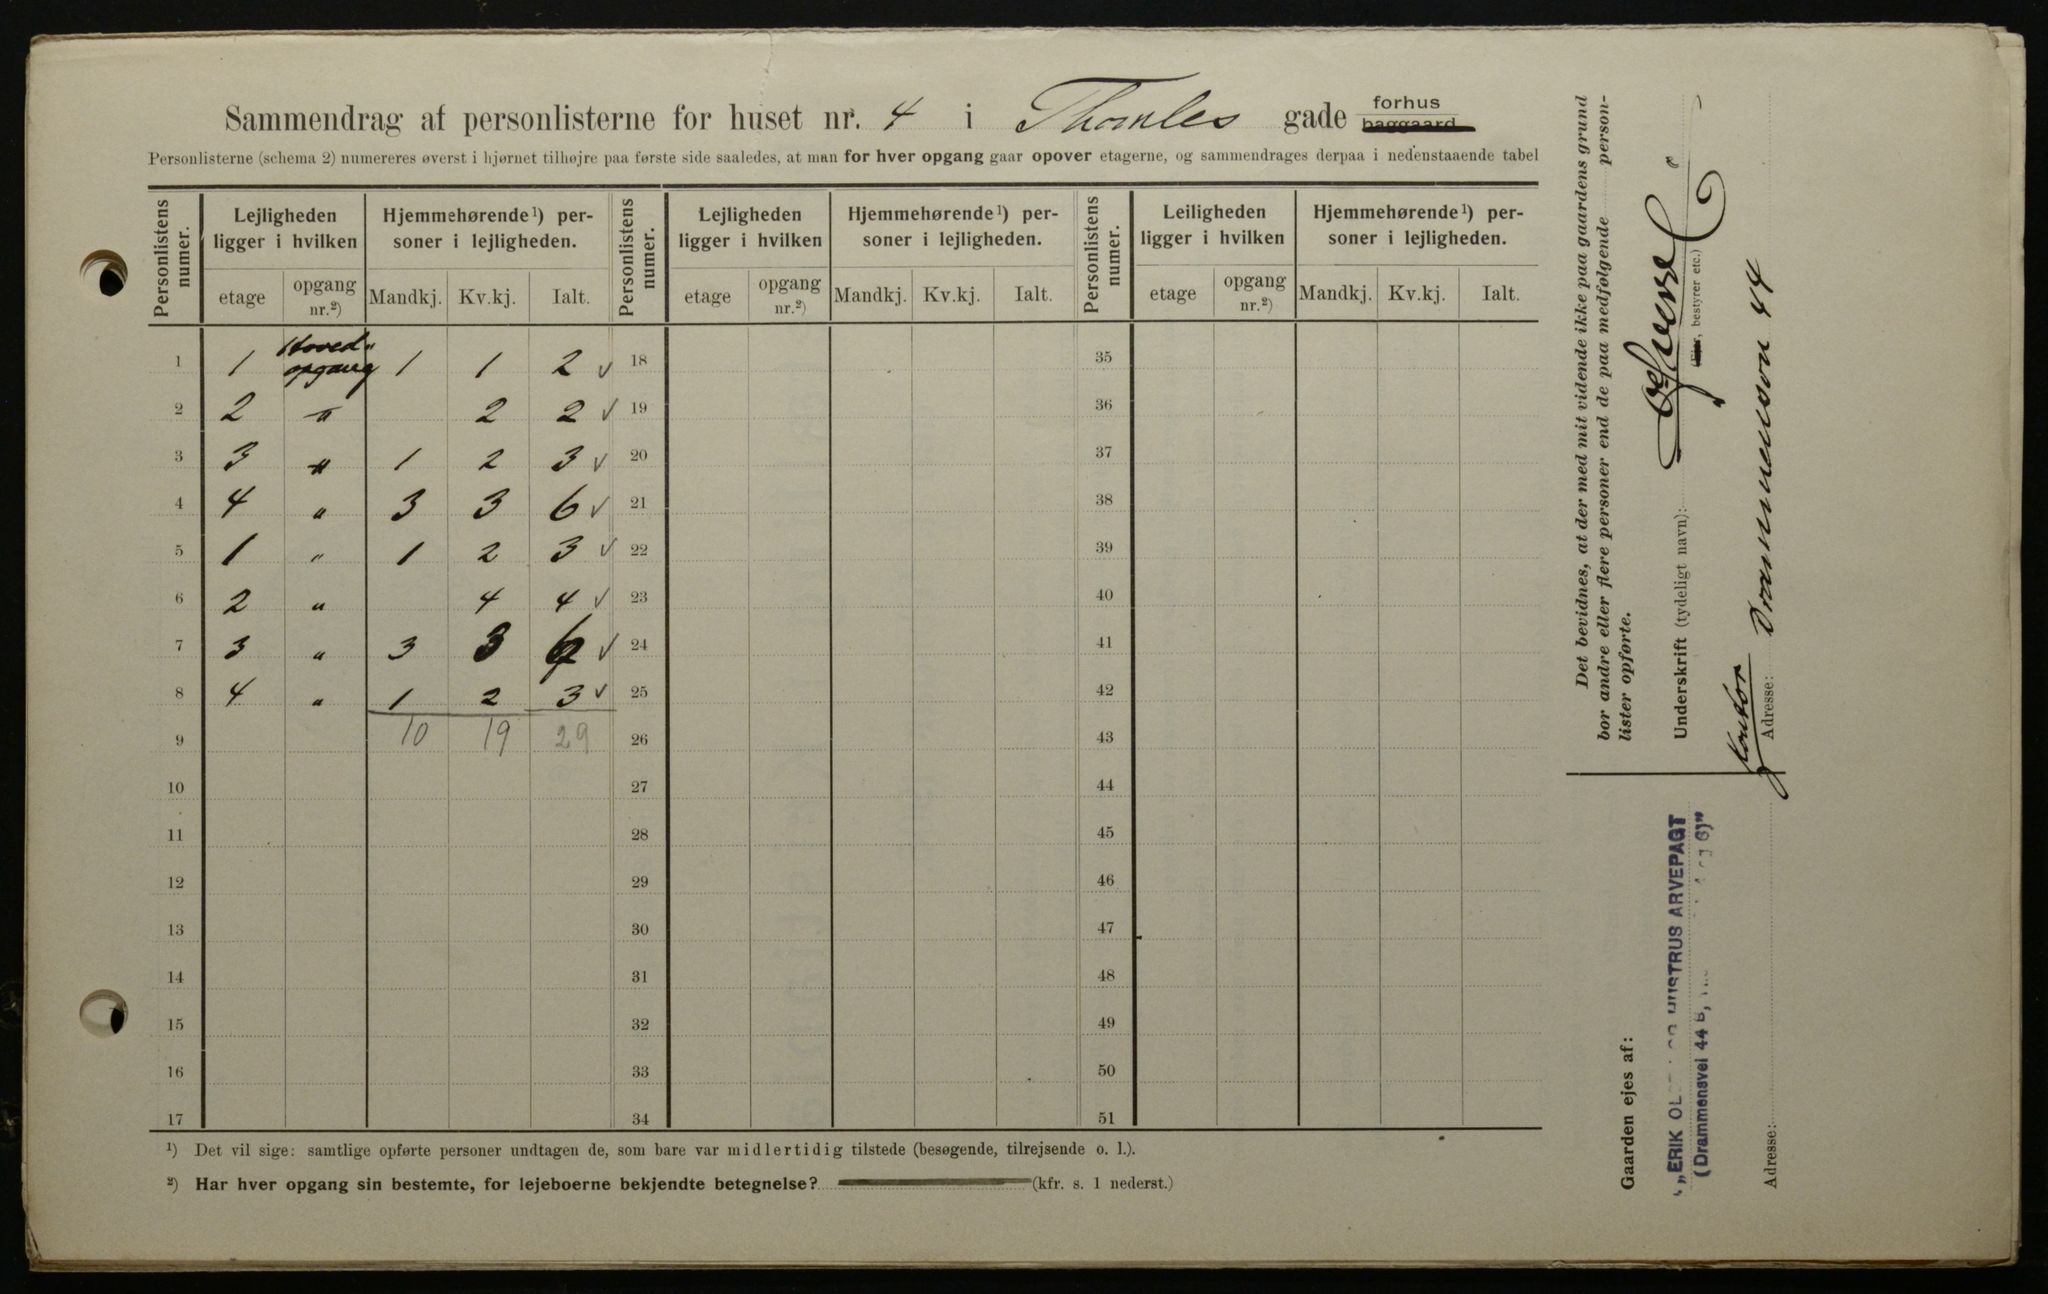 Sammendrag af personlisterne for huset nr. 4 i Thomles gade forhus baggaard
Personlisterne (schema 2) numereres øverst i hjørnet tilhøjre paa første side saaledes, at man for hver opgang gaar opover etagerne, og sammendrages derpaa i nedenstaaende tabel
Personlistens numer. Lejligheden ligger i hvilken Hjemmehørende ¹) personer i lejligheden. Personlistens numer. Lejligheden ligger i hvilken Hjemmehørende ¹) personer i lejligheden. Personlistens numer. Leiligheden ligger i hvilken Hjemmehørende ¹) personer i lejligheden.
etage opgang nr.²) Mandkj. Kv.kj. Ialt. etage opgang nr.²) Mandkj. Kv.kj. Ialt. etage opgang nr.²) Mandkj. Kv.kj. Ialt.
1 1 Hovedopgang 1 1 2 ✓ 18 35
2 2 " 2 2 ✓ 19 36
3 3 " 1 2 3 ✓ 20 37
4 4 " 3 3 6 ✓ 21 38
5 1 " 1 2 3 ✓ 22 39
6 2 " 4 4 ✓ 23 40
7 3 " 3 3 6 ✓ 24 41
8 4 " 1 2 3 ✓ 25 42
9 10 19 29 26 43
10 27 44
11 28 45
12 29 46
13 30 47
14 31 48
15 32 49
16 33 50
17 34 51
¹) Det vil sige: samtlige opførte personer undtagen de, som bare var midlertidig tilstede (besøgende, tilrejsende o. l.).
²) Har hver opgang sin bestemte, for lejeboerne bekjendte betegnelse? (kfr. s. 1 nederst.)
Det bevidnes, at der med mit vidende ikke paa gaardens grund
bor andre eller flere personer end de paa medfølgende personlister opførte.
Underskrift (tydeligt navn):
(Ejer, bestyrer etc.)
Kontor
Adresse: Drammensvn 44
Gaarden ejes af:
"ERIK OL HUSTRUS ARVEPAGT
(Drammensvei 44 B,
Adresse: